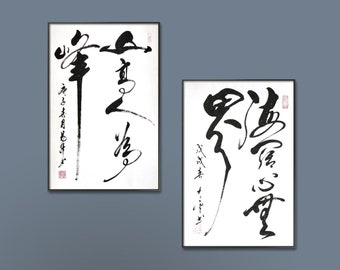 山高人為
峰
庚子春月
海闊心無
界
戊戌春